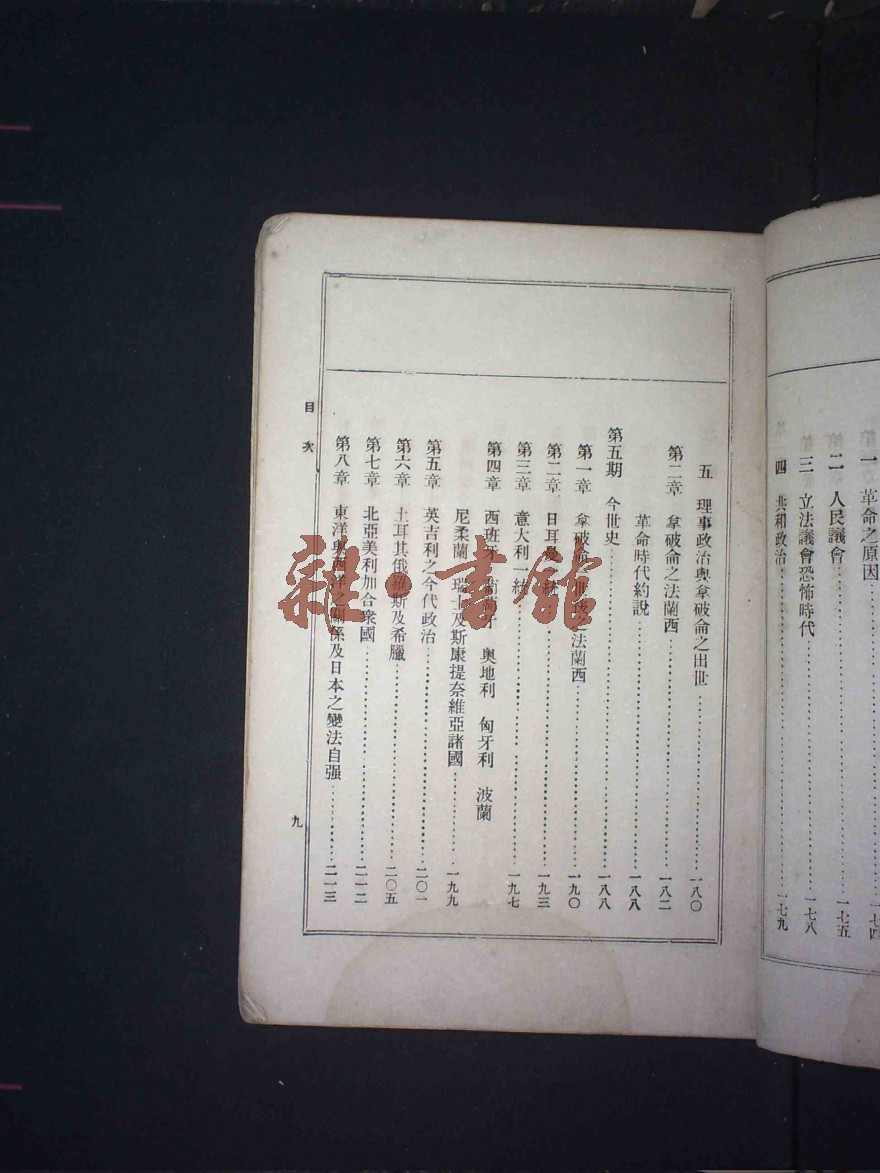 一 革命之原因……一七四
二 人民議會……一七五
三 立法議會恐怖時代……一七八
四 共和政治……一七九
五 理事政治與拿破侖之出世……一八〇
第二章 拿破侖之法蘭西……一八二
革命時代約說……一八八
第五期 今世史……一八八
第一章 拿破侖之法蘭西……一九〇
第二章 日耳曼一統……一九三
第三章 意大利一統……一九七
第四章 西班牙 葡萄牙 奧地利 匈牙利 波蘭
尼柔蘭 瑞士及斯康提奈維亞諸國……一九九
第五章 英吉利之今代政治……二〇一
第六章 土耳其俄羅斯及希臘……二〇五
第七章 北亞美利加合衆國……二一二
第八章 東洋與西洋之關係及日本之變法自强……二一三
目次
九
雜·書館